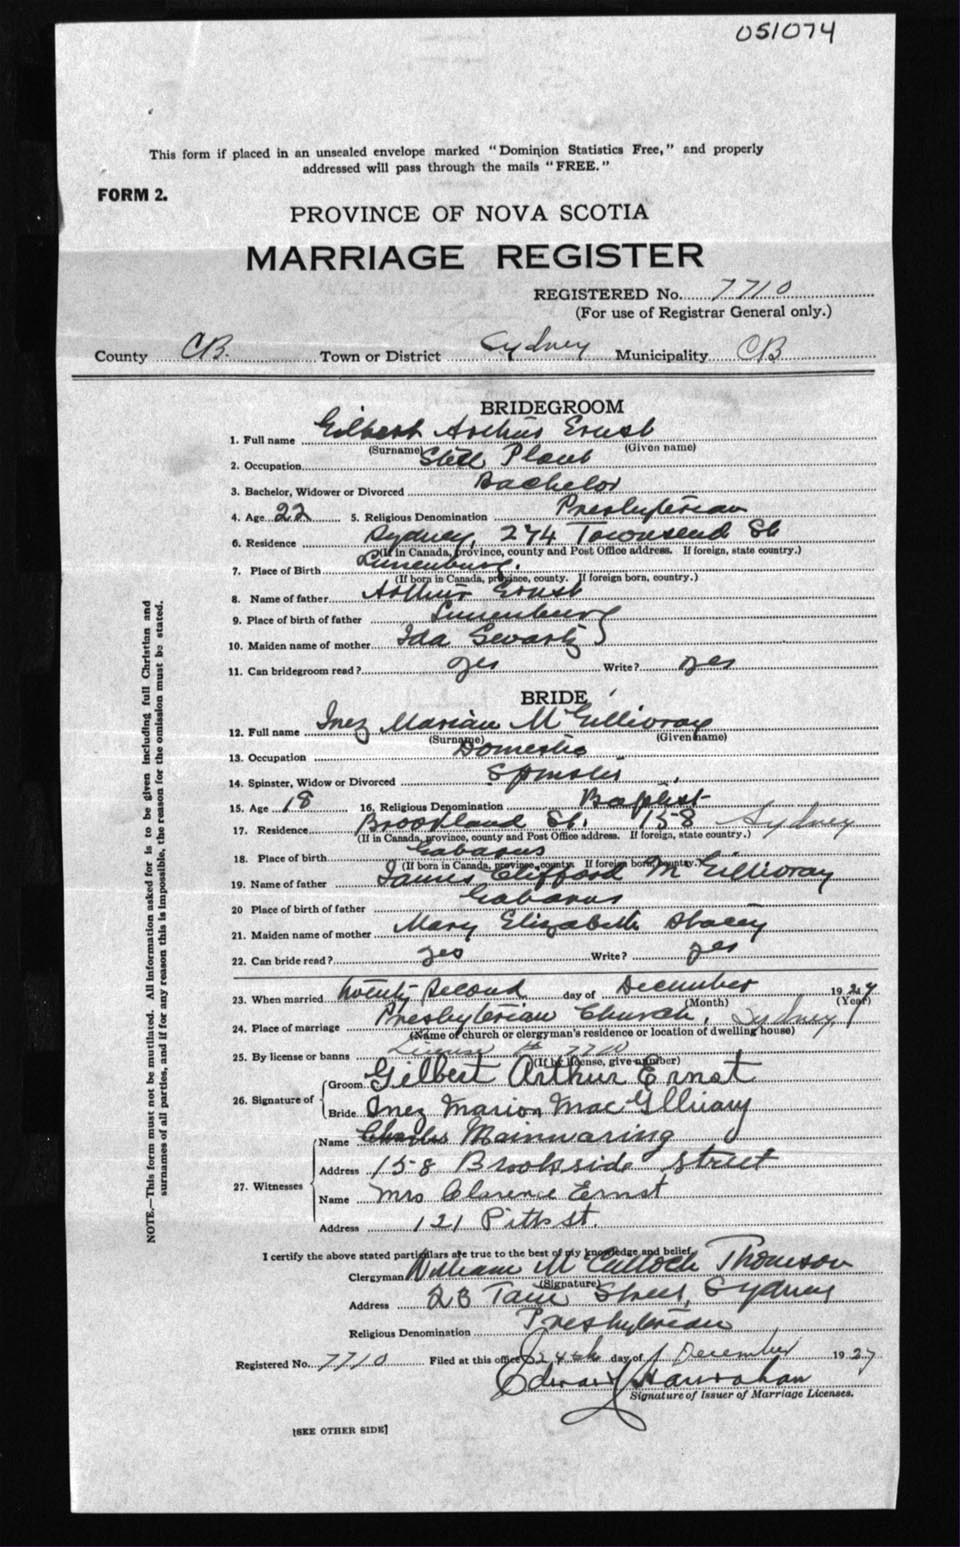 051074
This form if placed in an unsealed envelope marked "Dominion Statistics Free," and properly
addressed will pass through the mails "FREE."
FORM 2.
PROVINCE OF NOVA SCOTIA
MARRIAGE REGISTER
REGISTERED No. 7710
(For use of Registrar General only.)
County CB. Town or District Sydney Municipality CB
BRIDEGROOM
1. Full name Gilbert Arthur Ernst
(Surname) (Given name)
2. Occupation Steel Plant
3. Bachelor, Widower or Divorced Bachelor
4. Age 22 5. Religious Denomination Presbyterian
6. Residence Sydney, 274 Townsend St
(If in Canada, province, county and Post Office address. If foreign, state country.)
7. Place of Birth Lunenburg.
(If born in Canada, province, county. If foreign born, country.)
8. Name of father Arthur Ernst
9. Place of birth of father Lunenburg
10. Maiden name of mother Ida
11. Can bridegroom read? yes Write? yes
BRIDE
12. Full name Inez Marian McGillivray
(Surname) (Given name)
13. Occupation Domestic
14. Spinster, Widow or Divorced Spinster
15. Age 18 16. Religious Denomination Baptist
17. Residence Brookland St. 158 Sydney
(If in Canada, province, county and Post Office address. If foreign, state country.)
18. Place of birth Gabarus
(If born in Canada, province, county. If foreign born, country.)
19. Name of father James Clifford McGillivray
20 Place of birth of father Gabarus
21. Maiden name of mother Mary Elizabeth Stacey
22. Can bride read? yes Write? yes
23. When married twenty second day of December 1927
(Month) (Year)
24. Place of marriage Presbyterian Church, Sydney
(Name of church or clergyman's residence or location of dwelling house)
25. By license or banns License 7710
(If by license, give number)
26. Signature of
Groom Gilbert Arthur Ernst
Bride Inez Marion MacGllivary
27. Witnesses
Name Charles Mainwaring
Address 158 Brookside Street
Name Mrs Clarence Ernst
Address 121 Pitt st.
I certify the above stated particulars are true to the best of my knowledge and belief.
Clergyman William McCulloch Thomson
(Signature)
Address 23 Street, Sydney
Religious Denomination Presbyterian
Registered No. 7710 Filed at this office 24th day of December 1927
Edward Hanrahan
Signature of Issuer of Marriage Licenses.
[SEE OTHER SIDE]
NOTE.—This form must not be mutilated. All information asked for is to be given including full Christian and
surnames of all parties, and if for any reason this is impossible, the reason for the omission must be stated.